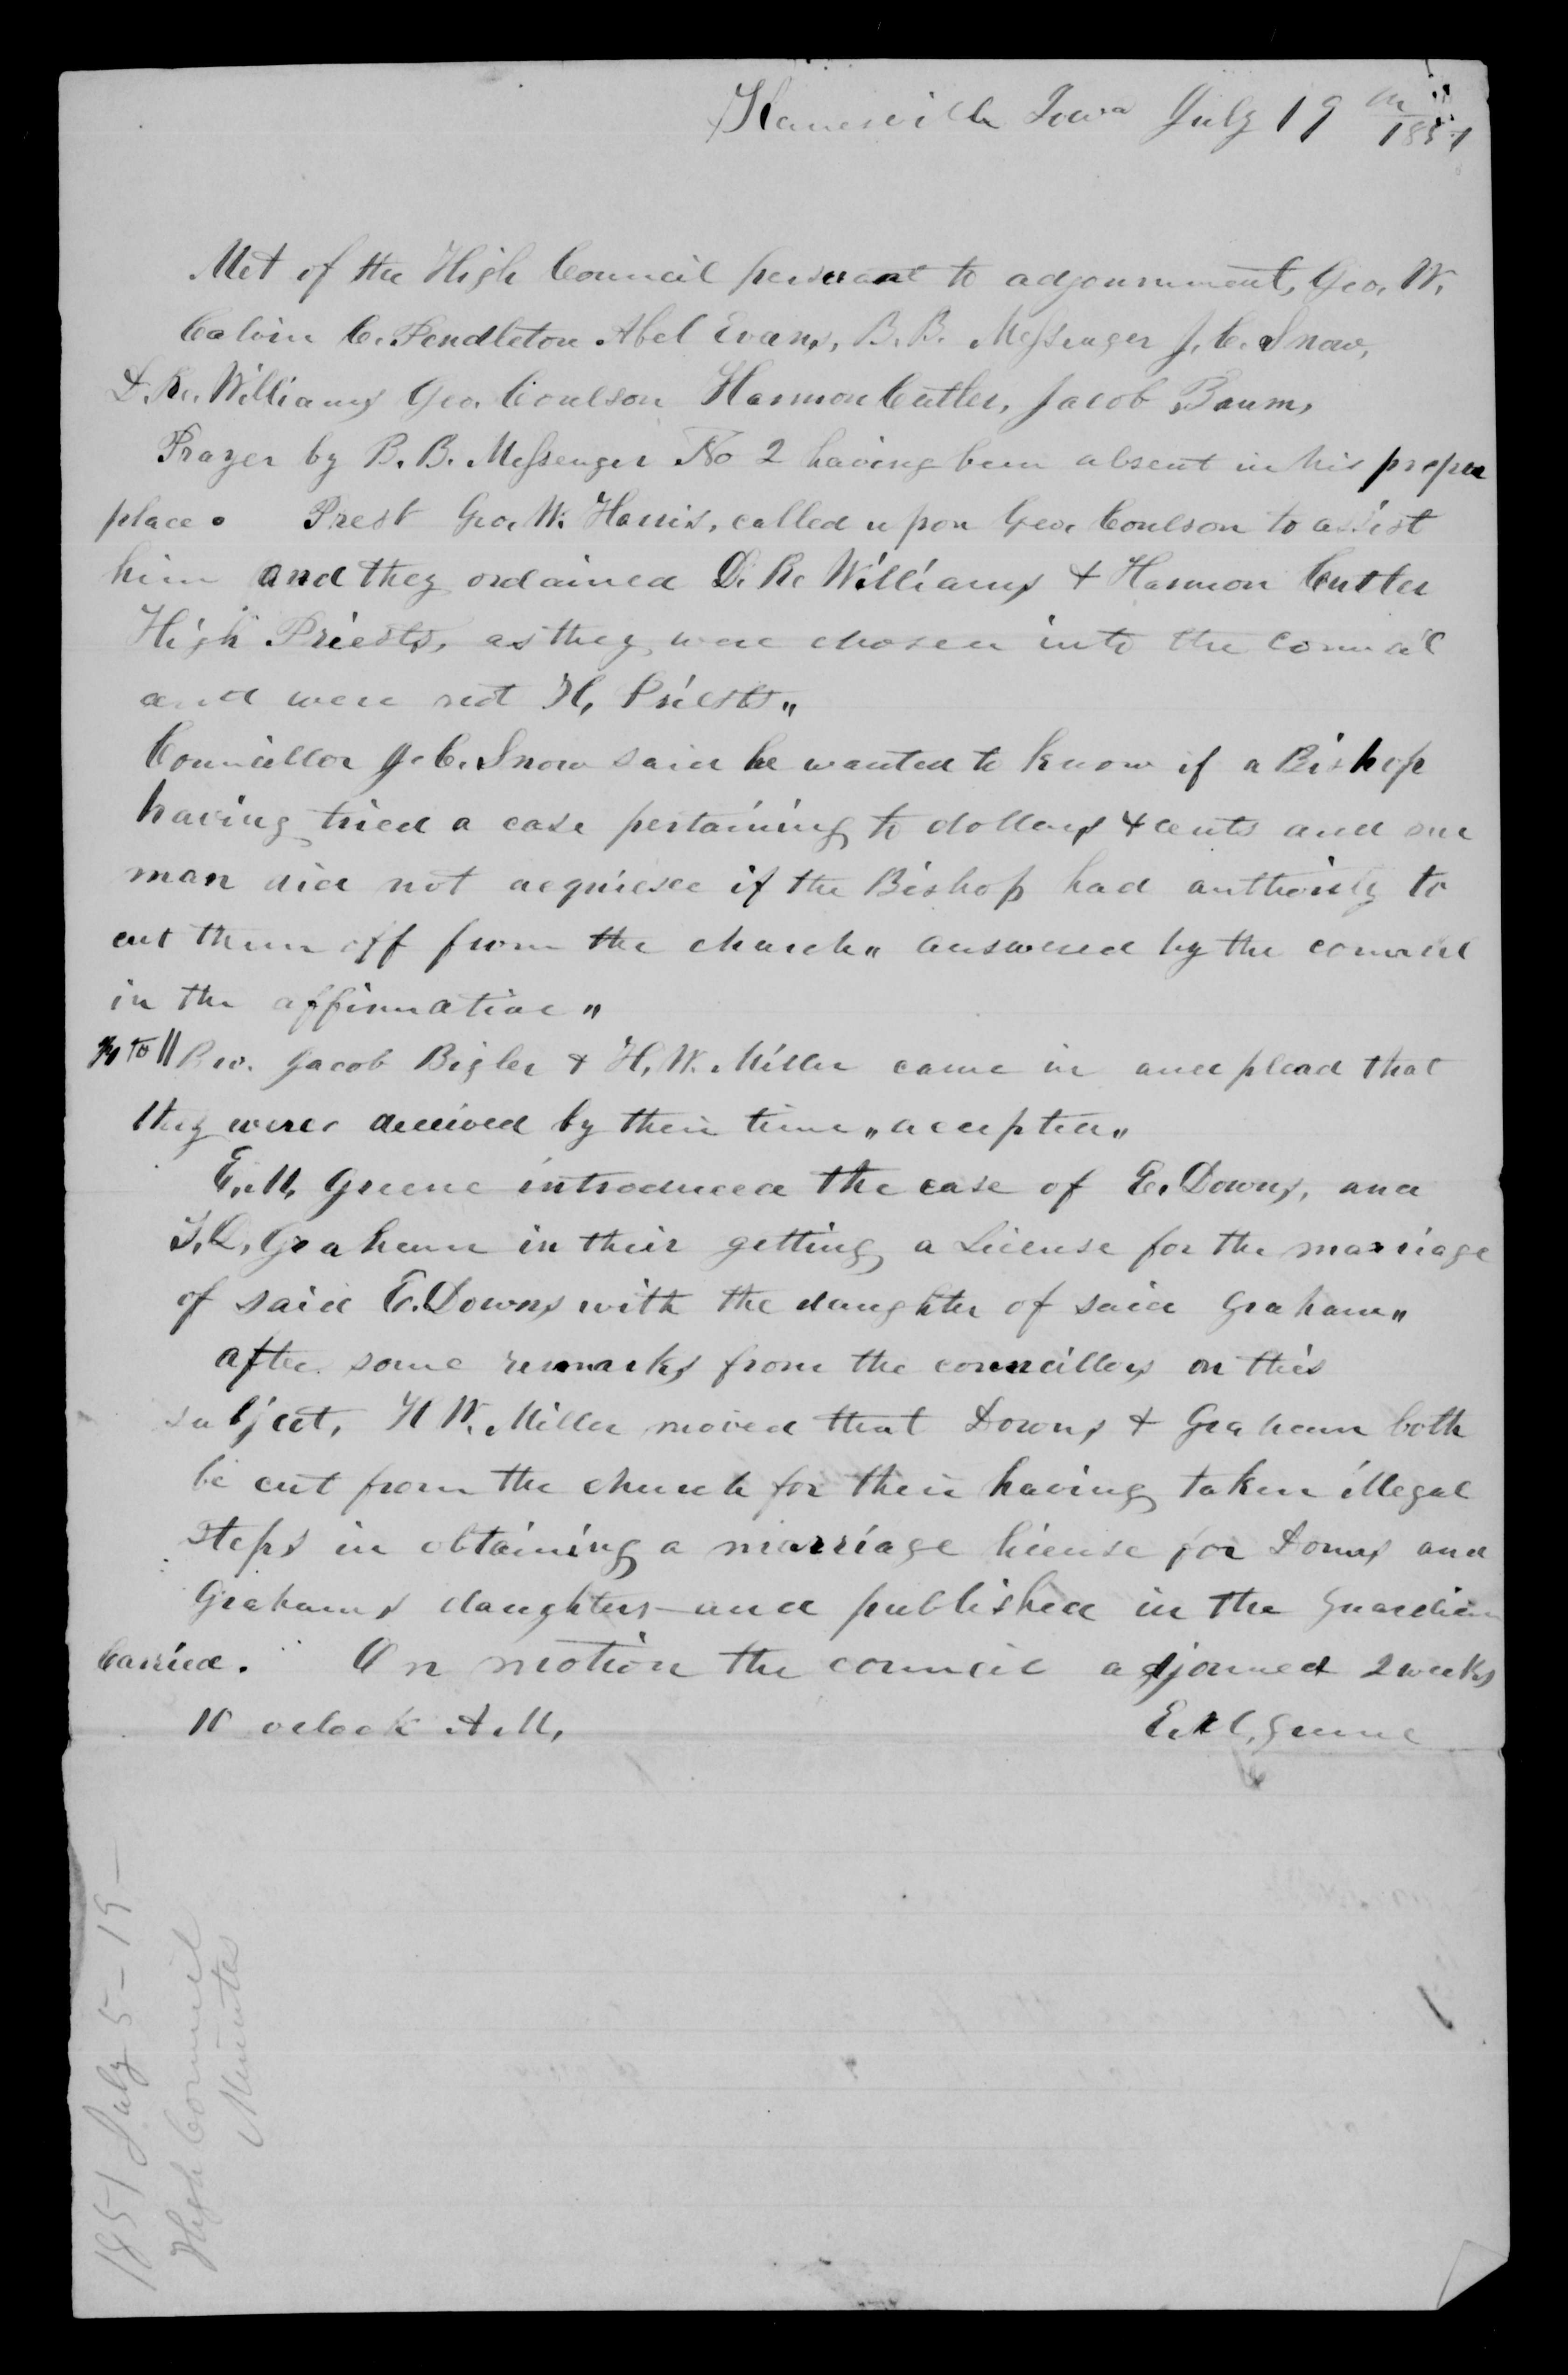 Kanesville Iowa July 19th 1851
Met of the High Council persuant to adjournment, Geo. W.
Calvin C. Pendleton Abel Evans, B. B. Messenger J. C. Snow,
D. R. Williams Geo. Coulson Harmon Cutler, Jacob Baum,
Prayer by B. B. Messenger No 2 having been absent in his proper
place. Prest Geo. W. Harris, called upon Geo. Coulson to assist
him and they ordained D. R. Williams & Harmon Cutler
High Priests, as they were chosen into the council
and were not H, Priests„
Councillor J. C. Snow said he wanted to know if a Bishop
having tried a case pertaining to dollars & cents and one
man did not acquiesce if the Bishop had authority to
cut them off from the church„ answered by the council
in the affirmative„
Bro. Jacob Bigler & H. W. Miller came in and plead that
they were deceived by their time„ accepted„
E. M. Greene introduced the case of E. Downs, and
Graham in their getting a License for the marriage
of said E. Downs with the daughter of said Graham„
after some remarks from the councillors on this
subject, H W. Miller moved that Downs & Graham both
be cut from the church for their having taken illegal
steps in obtaining a marriage license for Downs and
Grahams daughters—and published in the Guardian
Carried. On motion the council adjourned 2 weeks
10 oclock A. M, E. M. Greene
1851 July 5-19-
High Council
Minutes